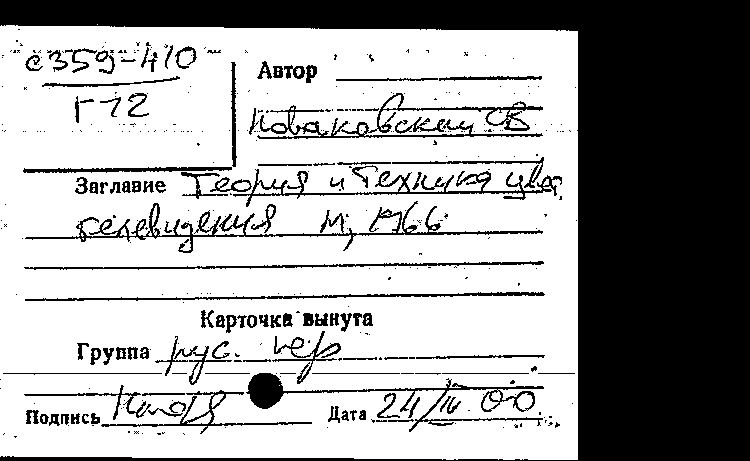 с359-410
Г-12
Автор
Новаковский СВ
Заглавие Теория и техника цвет.
телевидения М, 1966
Карточка вынута
Группа рус. пер
Подпись
Дата 24/IV 00